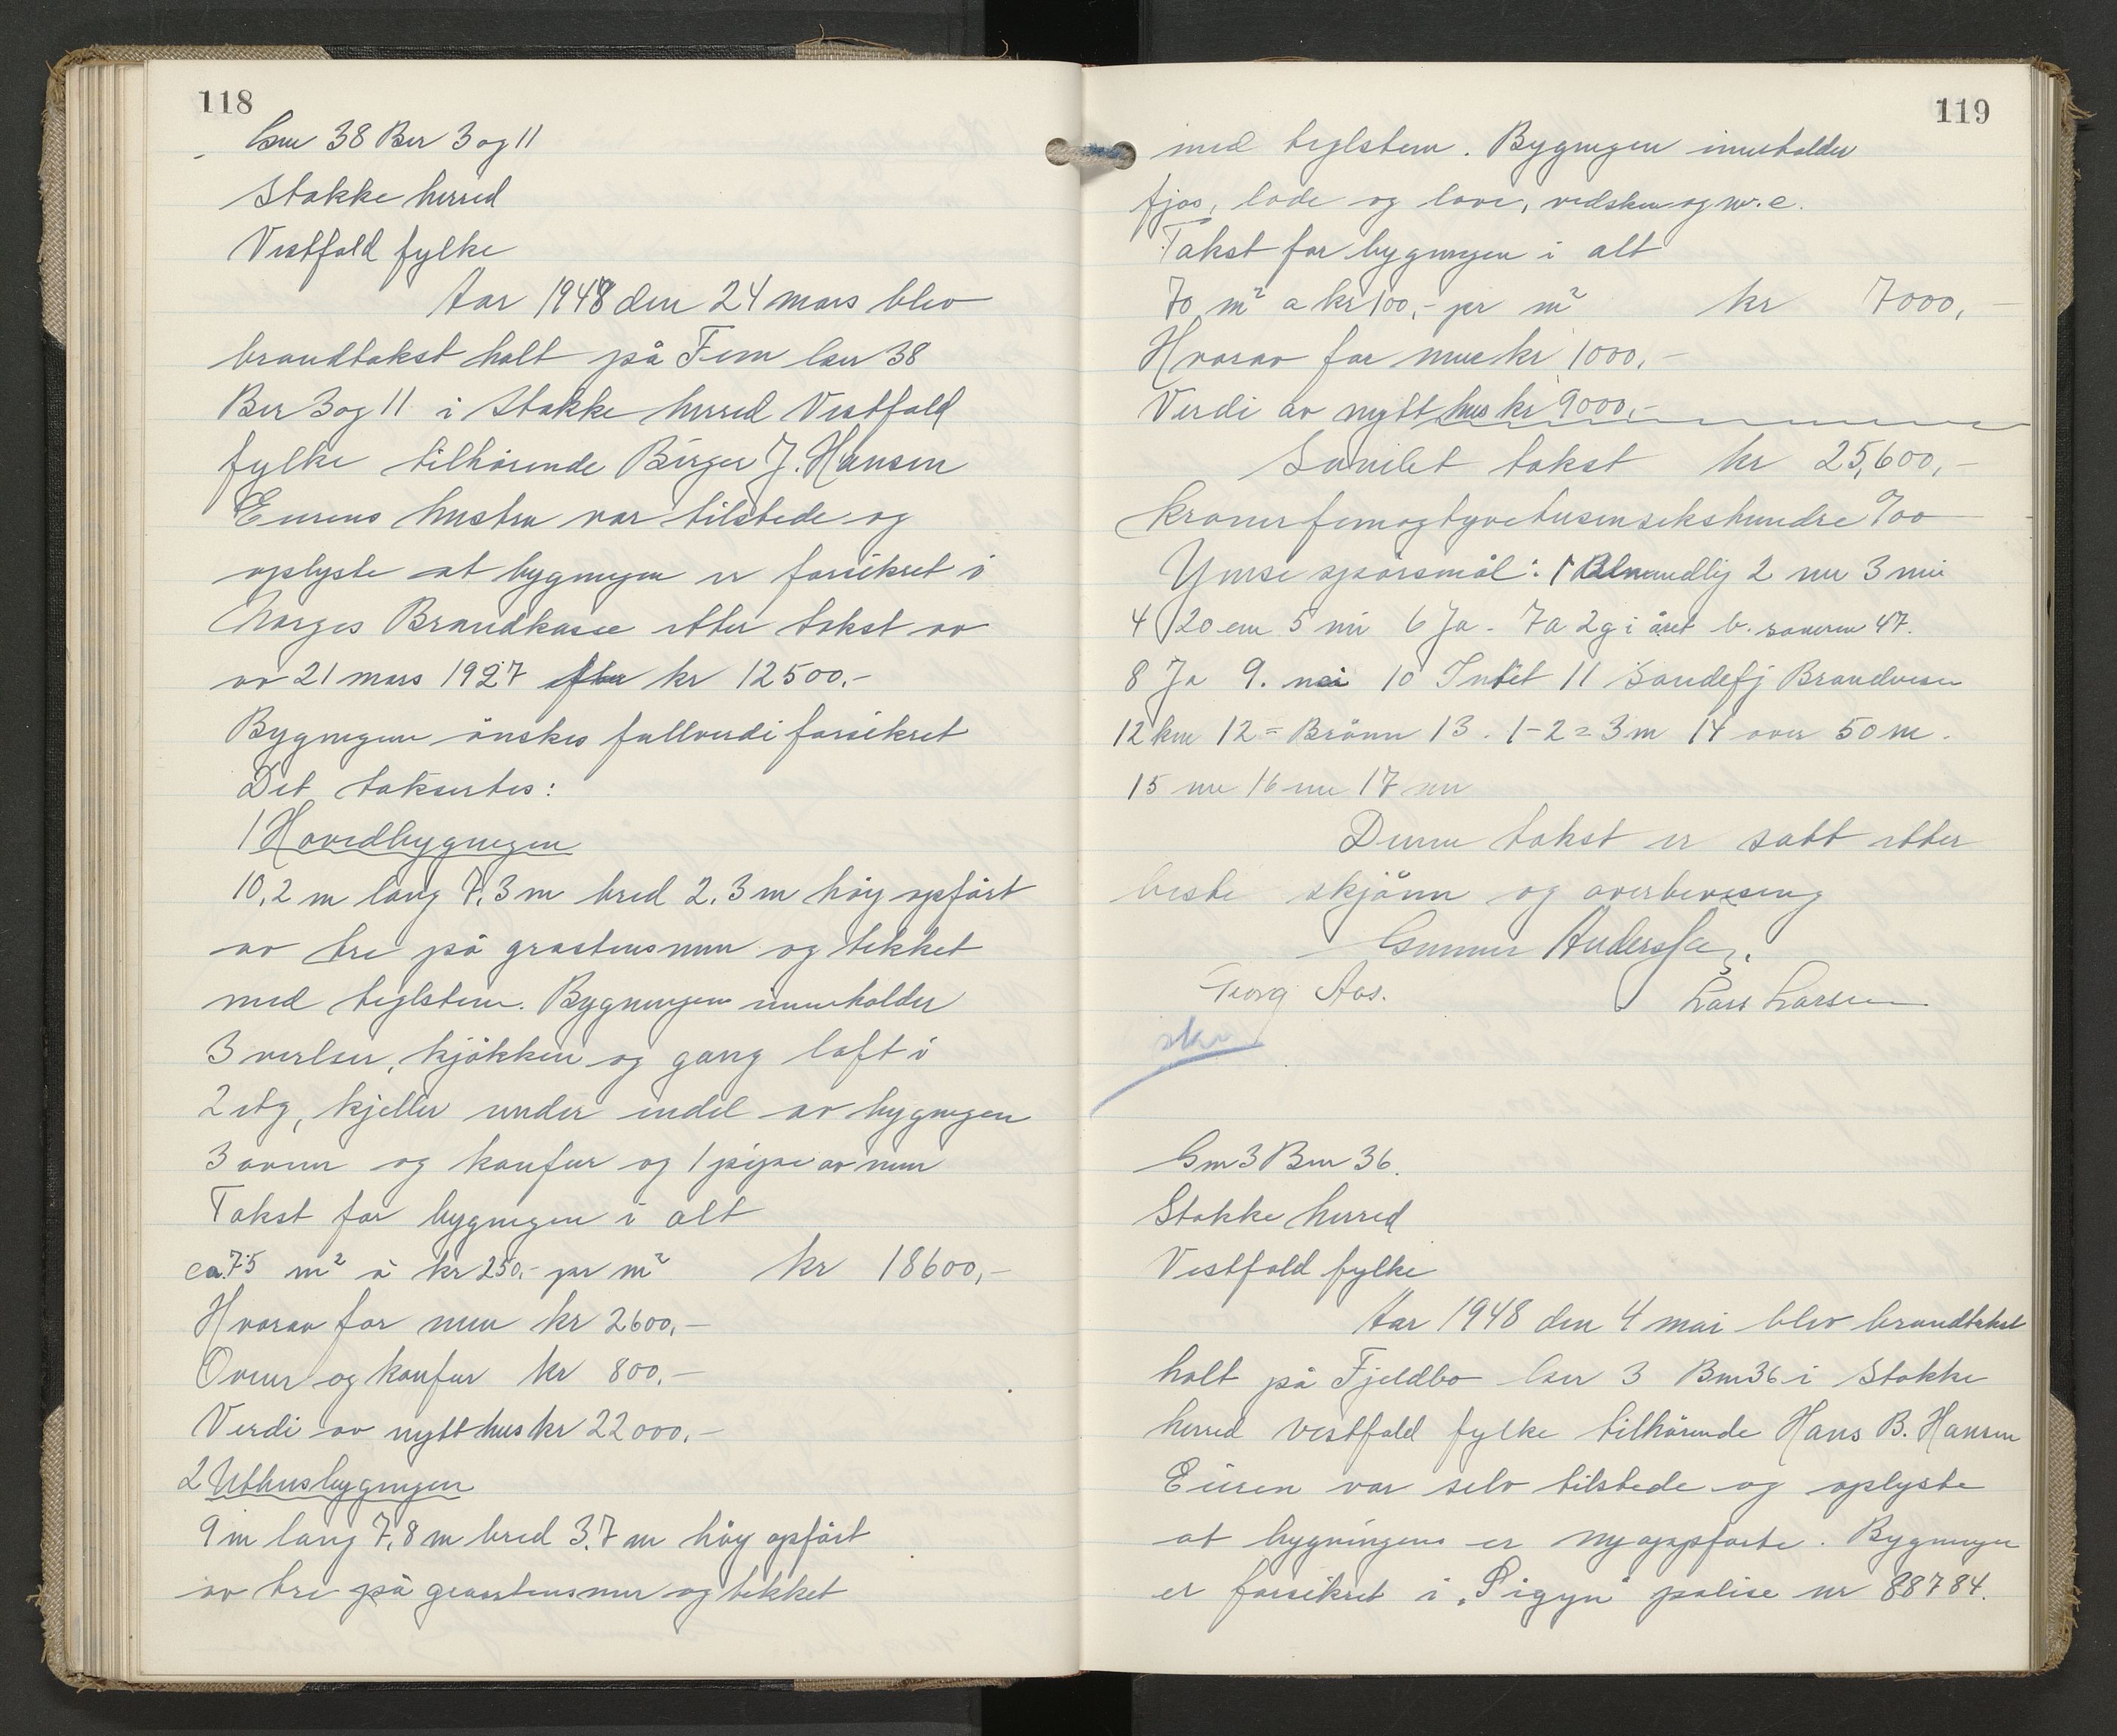 118
Gnr 38 Bnr 3 og 11
Stokke herred
Vestfold fylke
Aar 1948 den 24 mars blev
brandtakst holt på Fem Gnr 38
Bnr 3 og 11 i Stokke herred Vestfold
fylke tilhörende Birger J. Hansen
Eierens hustru var tilstede og
oplyste at bygningen er forsikret i
Norges Brandkasse etter takst av
av 21 mars 1927 kr 12500.-
Bygningene önskes fullverdiforsikret
Det taksertes:
1 Hovedbygningen
10,2 m lang 7,3 m bred 2,3 m höy opfört
av tre på grastensmur og tekket
med teglsten. Bygningen inneholder
3 verelser, kjökken og gang loft i
2 etg, kjeller under endel av bygningen
3 ovner og komfur og 1 pipe av mur
Takst for bygningen i alt
ca 75 m² à kr 250,- pr m² kr 18600,-
Hvorav for mur kr 2600,-
Ovner og komfur kr 800,-
Verdi av nytt hus kr 22000,-
2 Uthusbygningen
9 m lang 7,8 m bred 3,7 m höy opfört
av tre på grastensmur og tekket
119
med teglsten. Bygningen inneholder
fjøs, lade og lave, vedskur og w.c.
Takst for bygningen i alt
70 m² a kr 100,- pr m² kr 7000,-
Hvorav for mur kr 1000,-
Verdi av nytt hus kr 9000,-
Samlet takst kr 25,600,-
Kronerfemogtyvetusensekshundre 0/00
Ymse spörsmål: 1 Alminndlig 2 nei 3 nei
4 120 cm 5 nei 6 Ja - 7a 2 g i året b. 47.
8 Ja 9. nei 10 Intet 11 Sandefj Brandvesen
12 km 12 = Brönn 13. 1-2 = 3 m 14 over 50 m.
15 nei 16 nei 17 nei
Denne takst er satt etter
beste skjönn og overbevisning
Gunnar Anderssen.
Georg Aas. Lars Larsen
skr
Gnr 3 Bnr 36.
Stokke herred
Vestfold fylke
Aar 1948 den 4 mai blev brandtakst
holt på Fjeldbo Gnr 3 Bnr 36 i Stokke
herred Vestfold fylke tilhörende Hans B. Hansen
Eieren var selv tilstede og oplyste
at bygningene er nyoppförte. Bygningen
er forsikret i "Sigyn" polise nr 88784.